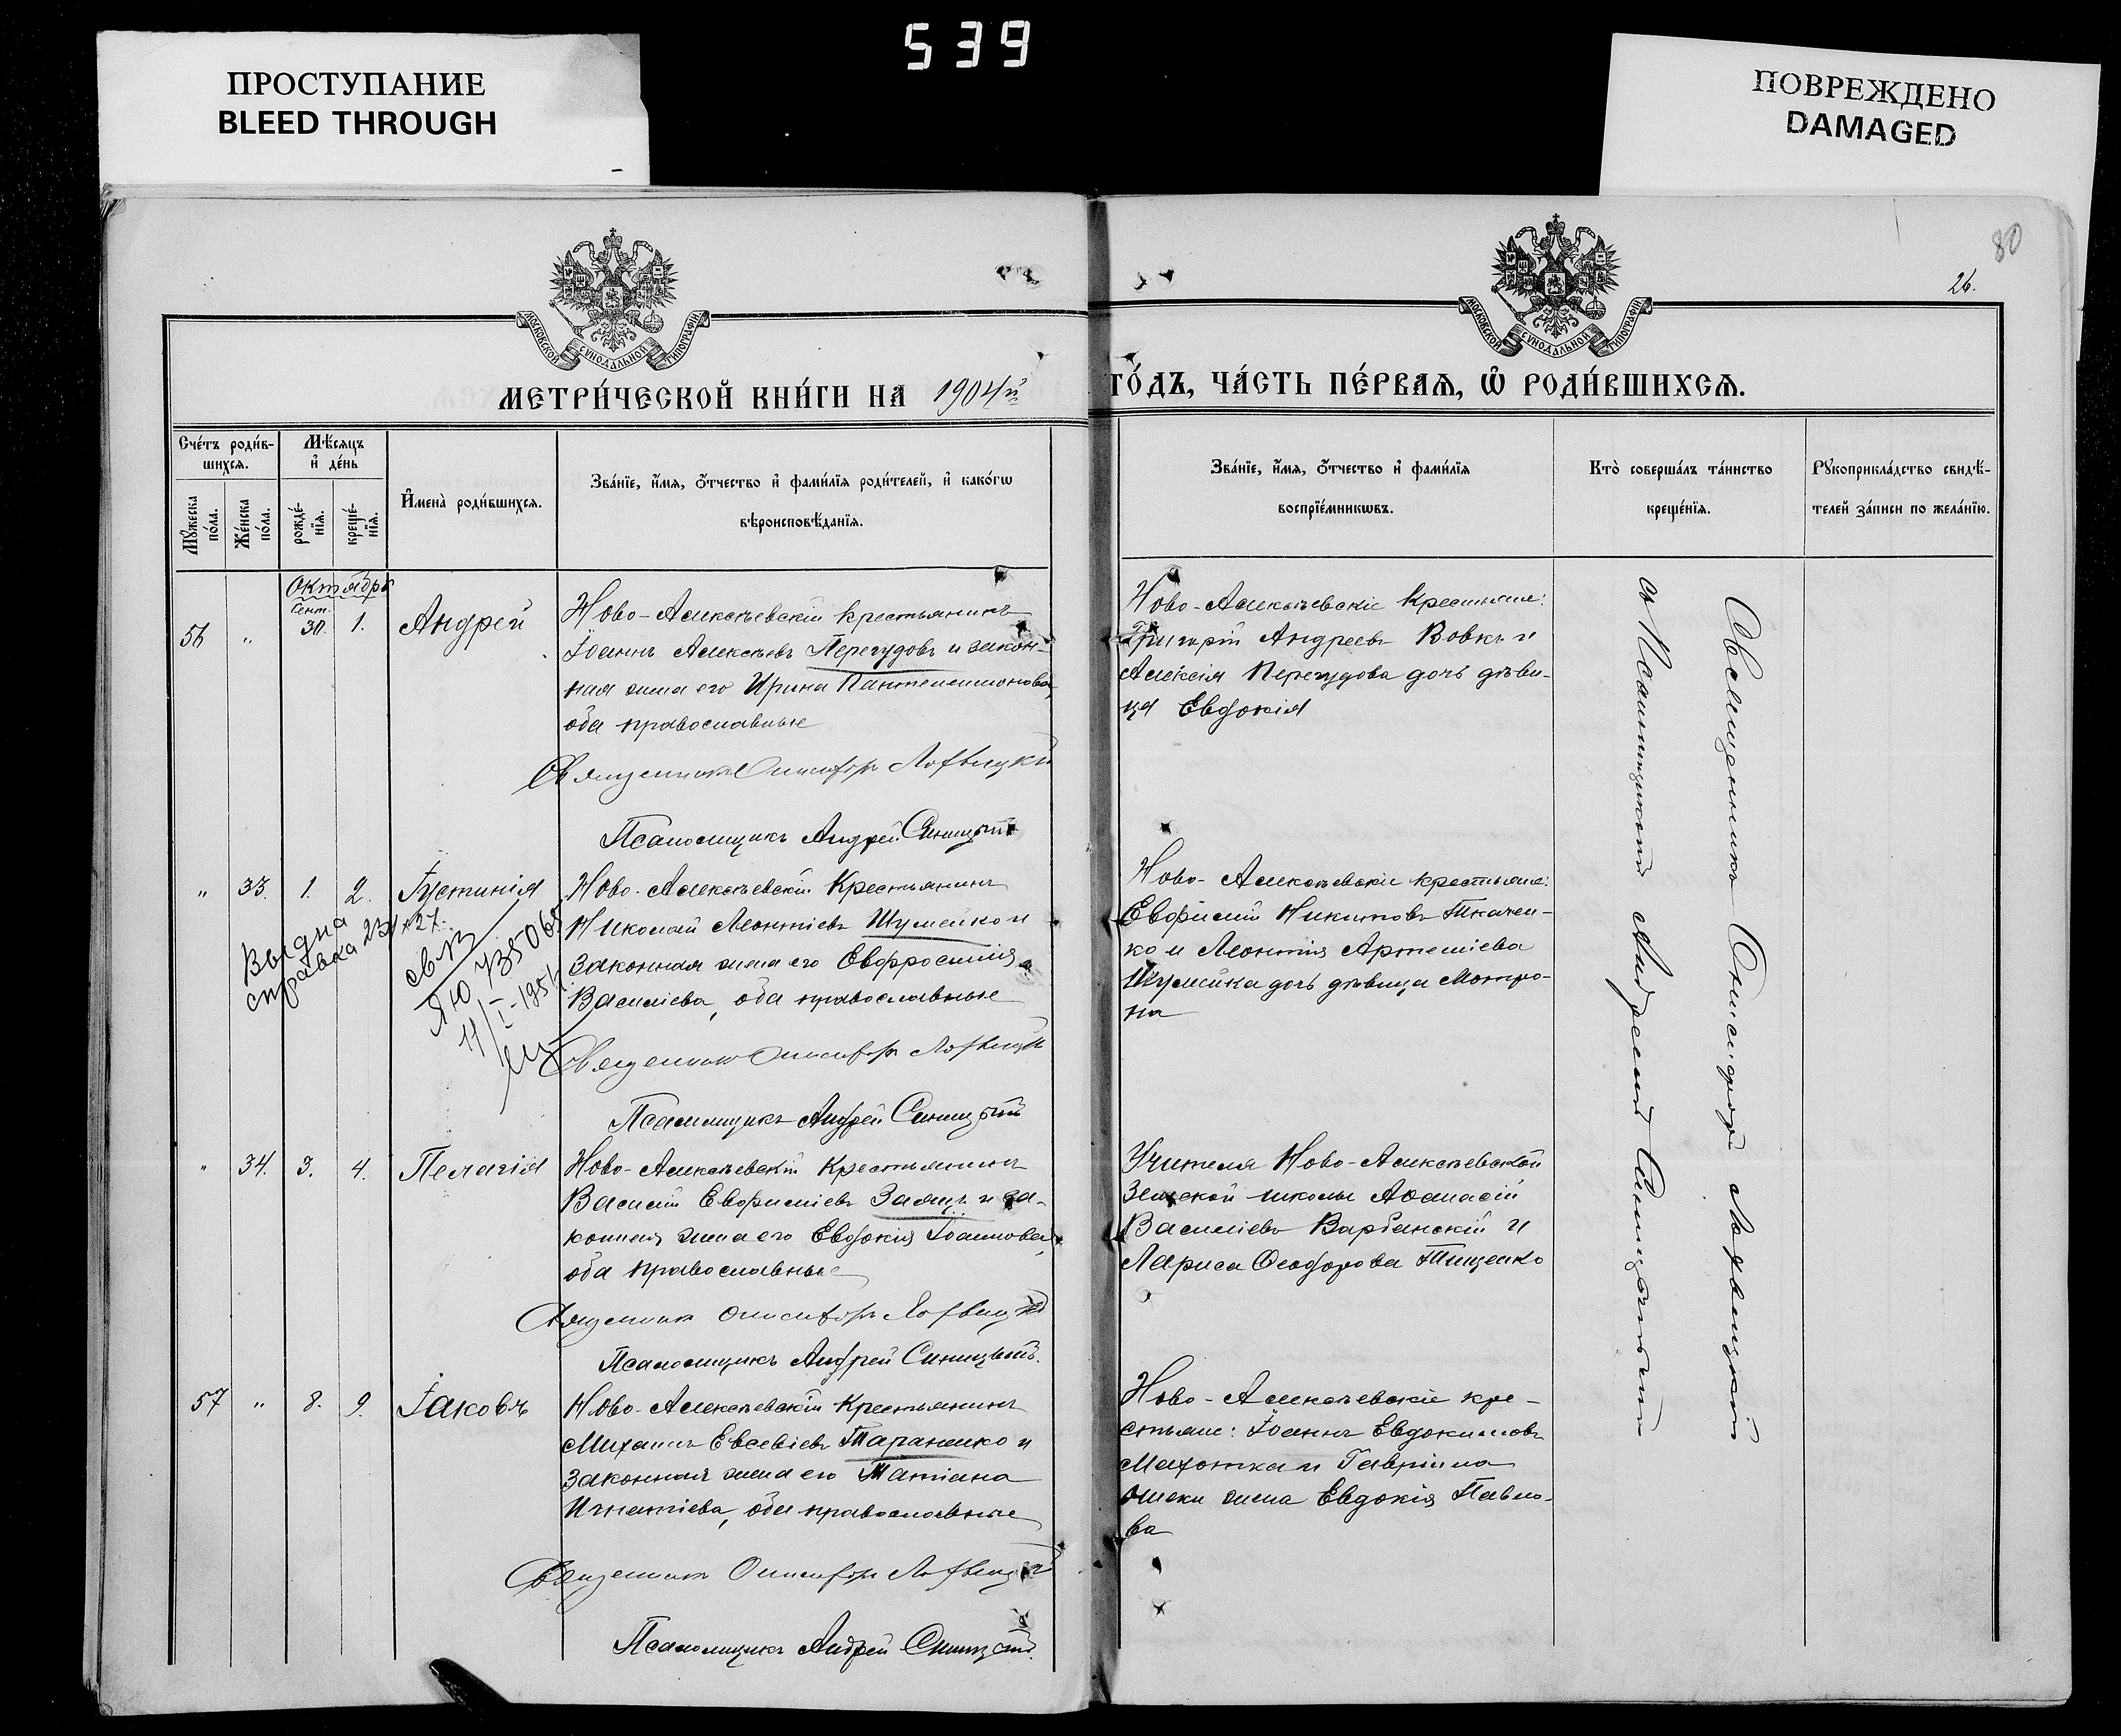 539
ПРОСТУПАНИЕ
BLEED THROUGH
ПОВРЕЖДЕНО
DAMAGED
80
26.
МОСКОВСКОЙ СѴНОДАЛЬНОЙ ТИПОГРАФІИ
МОСКОВСКОЙ СѴНОДАЛЬНОЙ ТИПОГРАФІИ
МЕТРИ́ЧЕСКОЙ КНИ́ГИ НА 1904й
ГО́ДЪ, ЧА́СТЬ ПЕ́РВАѦ, Ѡ РОДИ́ВШИХСѦ.
Сче́тъ роди́в-
шихсѧ.
Мꙋ́жеска по́ла.
Же́нска по́ла.
Мѣ́сѧцъ
и҆ де́нь
рожде́-
нїѧ.
креще́-
нїѧ.
И҆мена̀ роди́вшихсѧ.
Зва́нїе, и҆́мѧ, ѻ҆́тчество и҆ фами́лїѧ роди́телей, и҆ како́гѡ
вѣроисповѣ́данїѧ.
Зва́нїе, и҆́мѧ, ѻ҆́тчество и҆ фами́лїѧ
воспрїе́мникѡвъ.
Кто̀ соверша́лъ та́инство
креще́нїѧ.
Рꙋкоприкла́дство свидѣ́-
телей за́писи по жела́нїю.
Октябрь
56 „ Сент. 30. 1. Андрей
Ново-Алексѣевскій крестьянинъ
Іоаннъ Алексѣевъ Перегудовъ и закон-
ная жена его Ирина Пантелеимонова,
оба православные
Священникъ Онисифоръ Лотвицкій
Псаломщикъ Андрей Синицкій
Ново-Алексѣевскіе крестьяне:
Григорій Андреевъ Вовкъ и
Алексія Перегудова дочь дѣви-
ца Евдокія
„ 33. 1. 2. Іустинія
Выдана
справка
Ново-Алексѣевскій Крестьянинъ
Николай Леонтіевъ Шумейко и
законная жена его Евфросинія
Василіева, оба православные
Священникъ Онисифоръ Лотвицкій
Псаломщикъ Андрей Синицкій
Ново-Алексѣевскіе крестьяне:
Евфимій Никитовъ Ткачен-
ко и Леонтія Артеміева
Шумейка дочь дѣвица Мотро-
на
„ 34. 3. 4. Пелагія
Ново-Алексѣевскій Крестьянинъ
Василій Евфиміевъ Заяцъ и за-
конная жена его Евдокія Іоаннова,
оба православные
Священникъ Онисифоръ Лотвицкій
Псаломщикъ Андрей Синицкій.
Учителя Ново-Алексѣевской
Земской школы Аѳанасій
Василіевъ Варбанскій и
Лариса Ѳеодорова Тищенко
57 „ 8. 9. Іаковъ
Ново-Алексѣевскій Крестьянинъ
Михаилъ Евсевіевъ Тараненко и
законная жена его Татіана
Игнатіева, оба православные
Священникъ Онисифоръ Лотвицкій
Псаломщикъ Андрей Синицкій.
Ново-Алексѣевскіе кре-
стьяне: Іоаннъ Евдокимовъ
Махотка и Гавріила
жена Евдокія Павло-
ва
Священникъ Онисифоръ Лотвицкій
съ Псаломщикомъ Андреемъ